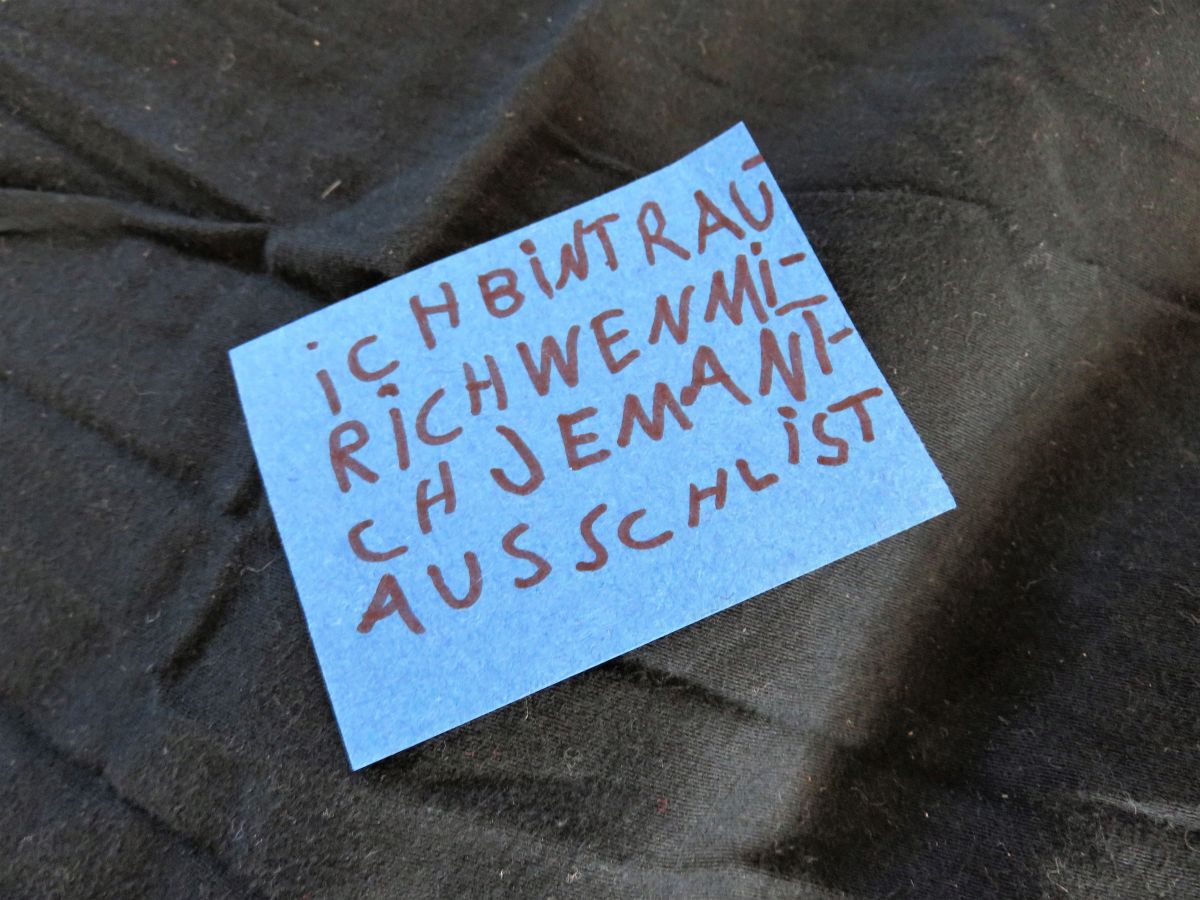 ICH BINTRAU-
RICHWENMI-
CH JEMANT-
AUSSCHLIST